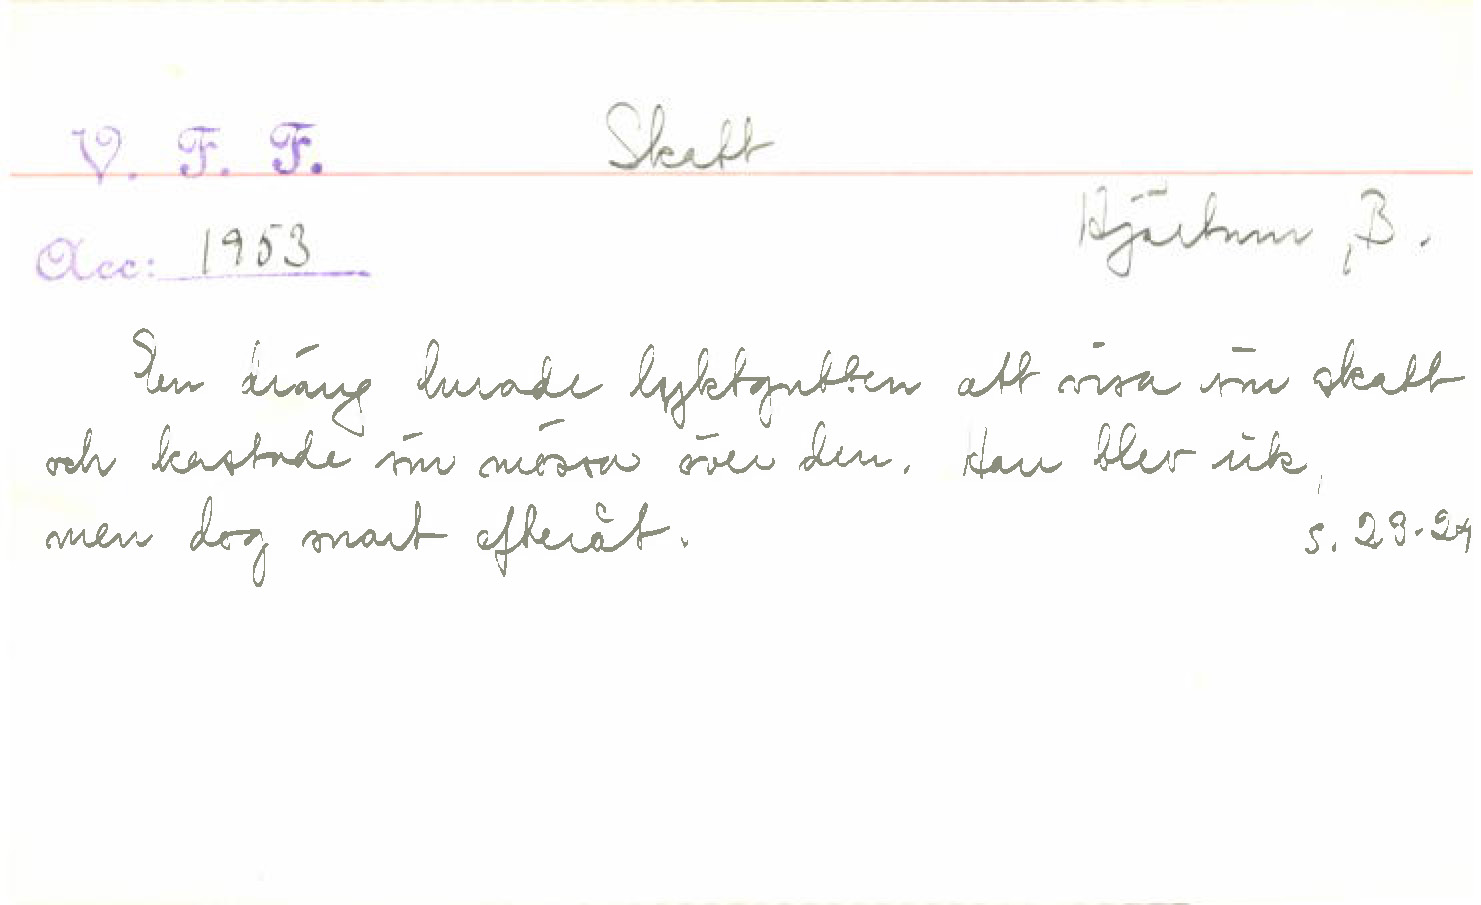 V. F. F. Skatt
Hjärtum, B.
Acc: 1953
En dräng lurade lyktgubben att visa sin skatt
och kastade sin mössa över den. Han blev rik,
men dog snart efteråt.
s. 23-24